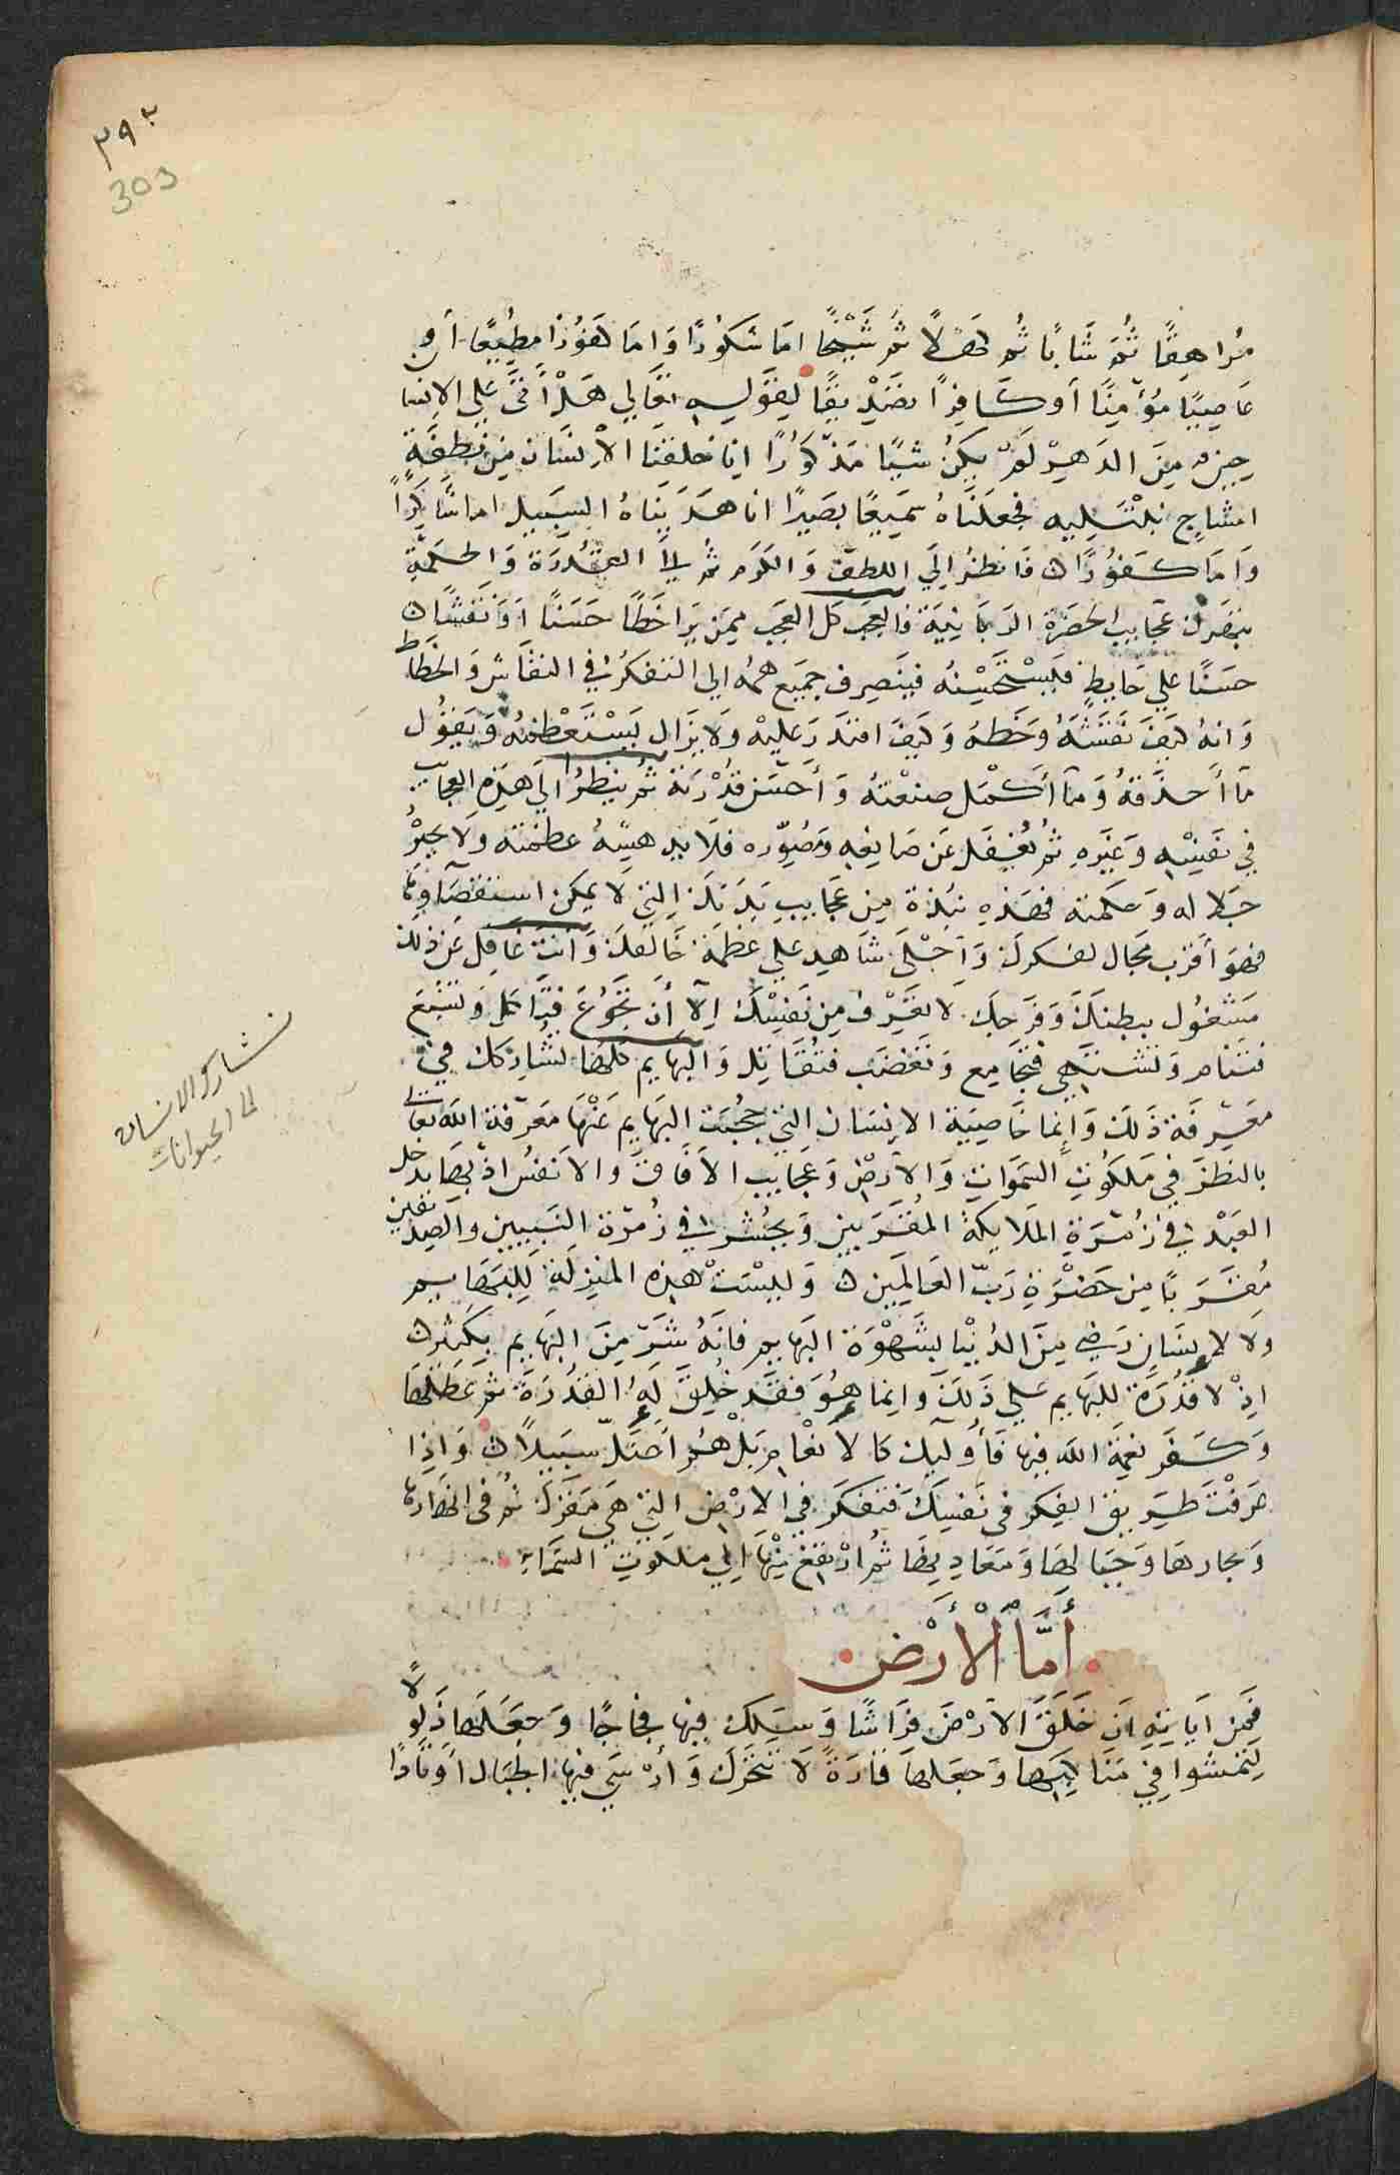 ٣٩٢
303
مُراهِقًا ثُمَّ شَابًا ثُم كَهْلًا ثُم شَيْخًا امَا شكُورًا وَامَا كفُورًا مطِيعًا أو
عَاصِيًا مُؤمِنًا أوكَافِرًا تصَديقًا لِقَولِه تعَالي هَلْ أتَى عَلي الانسا
حِين مِنَ الدَهرْ لَمْ يكنْ شيًا مَذكُورًا انا خلقنَا الْانسَان مِن نطفَةٍ
امشَاجٍ نبْتَلِيه فجعَلنَاهُ سَميعًا بصَيرًا انا هَدَيَناهُ السَبيل اما شَاكِرًا
وَامَا كفُورًا ه فَانظُر الَي اللطف وَالكَرم ثم الَي القُدرَة وَالحكمَةِ
تبهَرك عجَايب الحضرَة الربَانِيَة فالعَجَب كل العَجَب ممِن يَرا خطًا حَسَنًا اوَ نقشًا ه
حسَنًا علي حَايطٍ فيَسْتَحسْنهُ فيَنصرف جَميَع همهُ الي التفكرُ في النقَاش وَالخطَاط
وَانهُ كيَف نقَشَهُ وَخَطهُ وَكيَف اقتدَرَ عليْه وَلا يزَال يَسْتَعْظمهُ وَيَقوُل
مَا أحذَقهُ وَمَا أكمَل صنعْتهُ وَأحسَن قدُرَتهُ ثم ينظرُ الَي هَذِه العجايب
في نفسِه وَغيَرهِ ثُم يُغِفل عَن صَانِعِه وَمُصَوِّره فلَا يدهِشهُ عظمَته وَلَا يحيرُ
جَلاله وَحكمته فهَذهِ نبَذة مِن عَجَايبِ بَدَنكَ التِي لَا يمكِن استقصَاوهَا
فهوَ أقرَب مجَال لفكرِك وَأجْلَى شاهِدٍ علي عَظمَة خَالقكَ وَانتَ غَافِل عَن ذلك
مَشغوُل ببطنكَ وَفرَجكَ لا تعَرِف مِن نَفسِكَ اِلَّا أن تجُوعَ فتَاكل وَتشبَعَ
فتنَام وَتشتهَي فتجَامِع وَتغضَب فتقَاتِل وَالبهايم كلهَا تشَارِككَ في
معَرِفَة ذَلكَ وَانما خَاصِيَة الانسَان التي حجُبَت البهَايم عَنهَا مَعرفة اللَه تعالَى
بالنظر في مَلكوُتِ السَموَات وَالْأرض وَعجَايب الآفَاق وَالانفُس اذ بهَا يدخل
العَبْد في زُمرَةِ المَلايكة المُقَرَبين وَيحُشر في زُمرَة النبَيين والصِديقين
مُقَرَبًا مِن حَضرَةِ رَبّ العَالمَين ه وَليسْتْ هذِه المنزِلَة لِلبهَايم
وَلَا لاِنسَانٍ رَضي مِنَ الدُنيَا بشَهْوَة البهَايم فانَهُ شَرّ مِنَ البهَايم بكثِير ه
اِذْ لا قُدْرَة للبهَايم عَلي ذَلكَ وانما هُوَ فقد خُلِقَ لهُ القُدرَة ثم عَطلهَا
وَكفَر نِعمَة اللَه فيها فَأولَيك كالاَنعْامِ بَلْ هُم أضَلّ سَبيلًا ه وَاذِا
عَرفتَ طَريق الفِكر في نَفسِكَ فتفكَرَ في الارض التي هَي مَقرُكَ ثُم في انهَارهَا
وَبحارهَا وَجبَالهَا وَمَعَادِنِهَا ثُم ارْتفِعْ مِنهَا الِي ملكَوُتِ السَمَاءِ
أَمَّا الْأَرْض
فمَن ايَاتِهِ ان خلَقَ الأرْضَ فِرَاشًا وَسَلك فيها فجَاجًا وَجعَلهَا ذَلُولًا
لِتمشوا في مَنَاكِبَهَا وَجعَلهَا قارَةً لَا تَتحَرك وَأرْسَي فيهَا الجبَال أوَتادًا
تشارك الانسان
الحيوانات